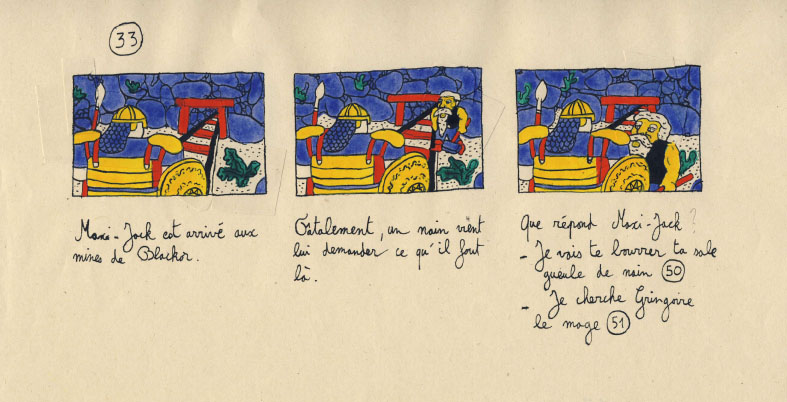 33
Maxi-Jack est arrivé aux
mines de Blackor.
Fatalement, un nain vient
lui demander ce qu'il fout
là.
Que répond Maxi-Jack ?
- Je vais te bourrer ta sale
gueule de nain 50
- Je cherche Gringoire
le mage 51